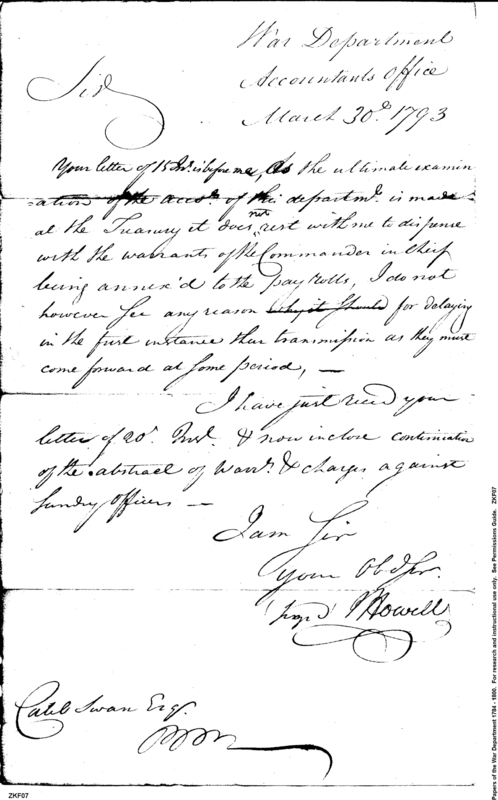 War Department
Accountants Office
March 30th. 1793
Sir
Your letter of 15 Inst. is before me, As the ultimate examin
-ation of the accts. of this departmt. is made
at the Treasury it does not rest with me to dispense
with the warrants of the Commander in Chief
being annex'd to the pay Rolls, I do not
however see any reason why it should for delaying
in the first instance their transmission as they must
come forward at some period, —
I have just rece'd your
letter of 20t. Inst. & now inclose continuation
of the abstract of Warrts. & charges against
Sundry officers —
I am Sir
your Obd Ser.
J Howell
Caleb Swan Esqr.
ZKF07
Papers of the War Department 1784 - 1800. For research and instructional use only. See Permissions Guide. ZKF07